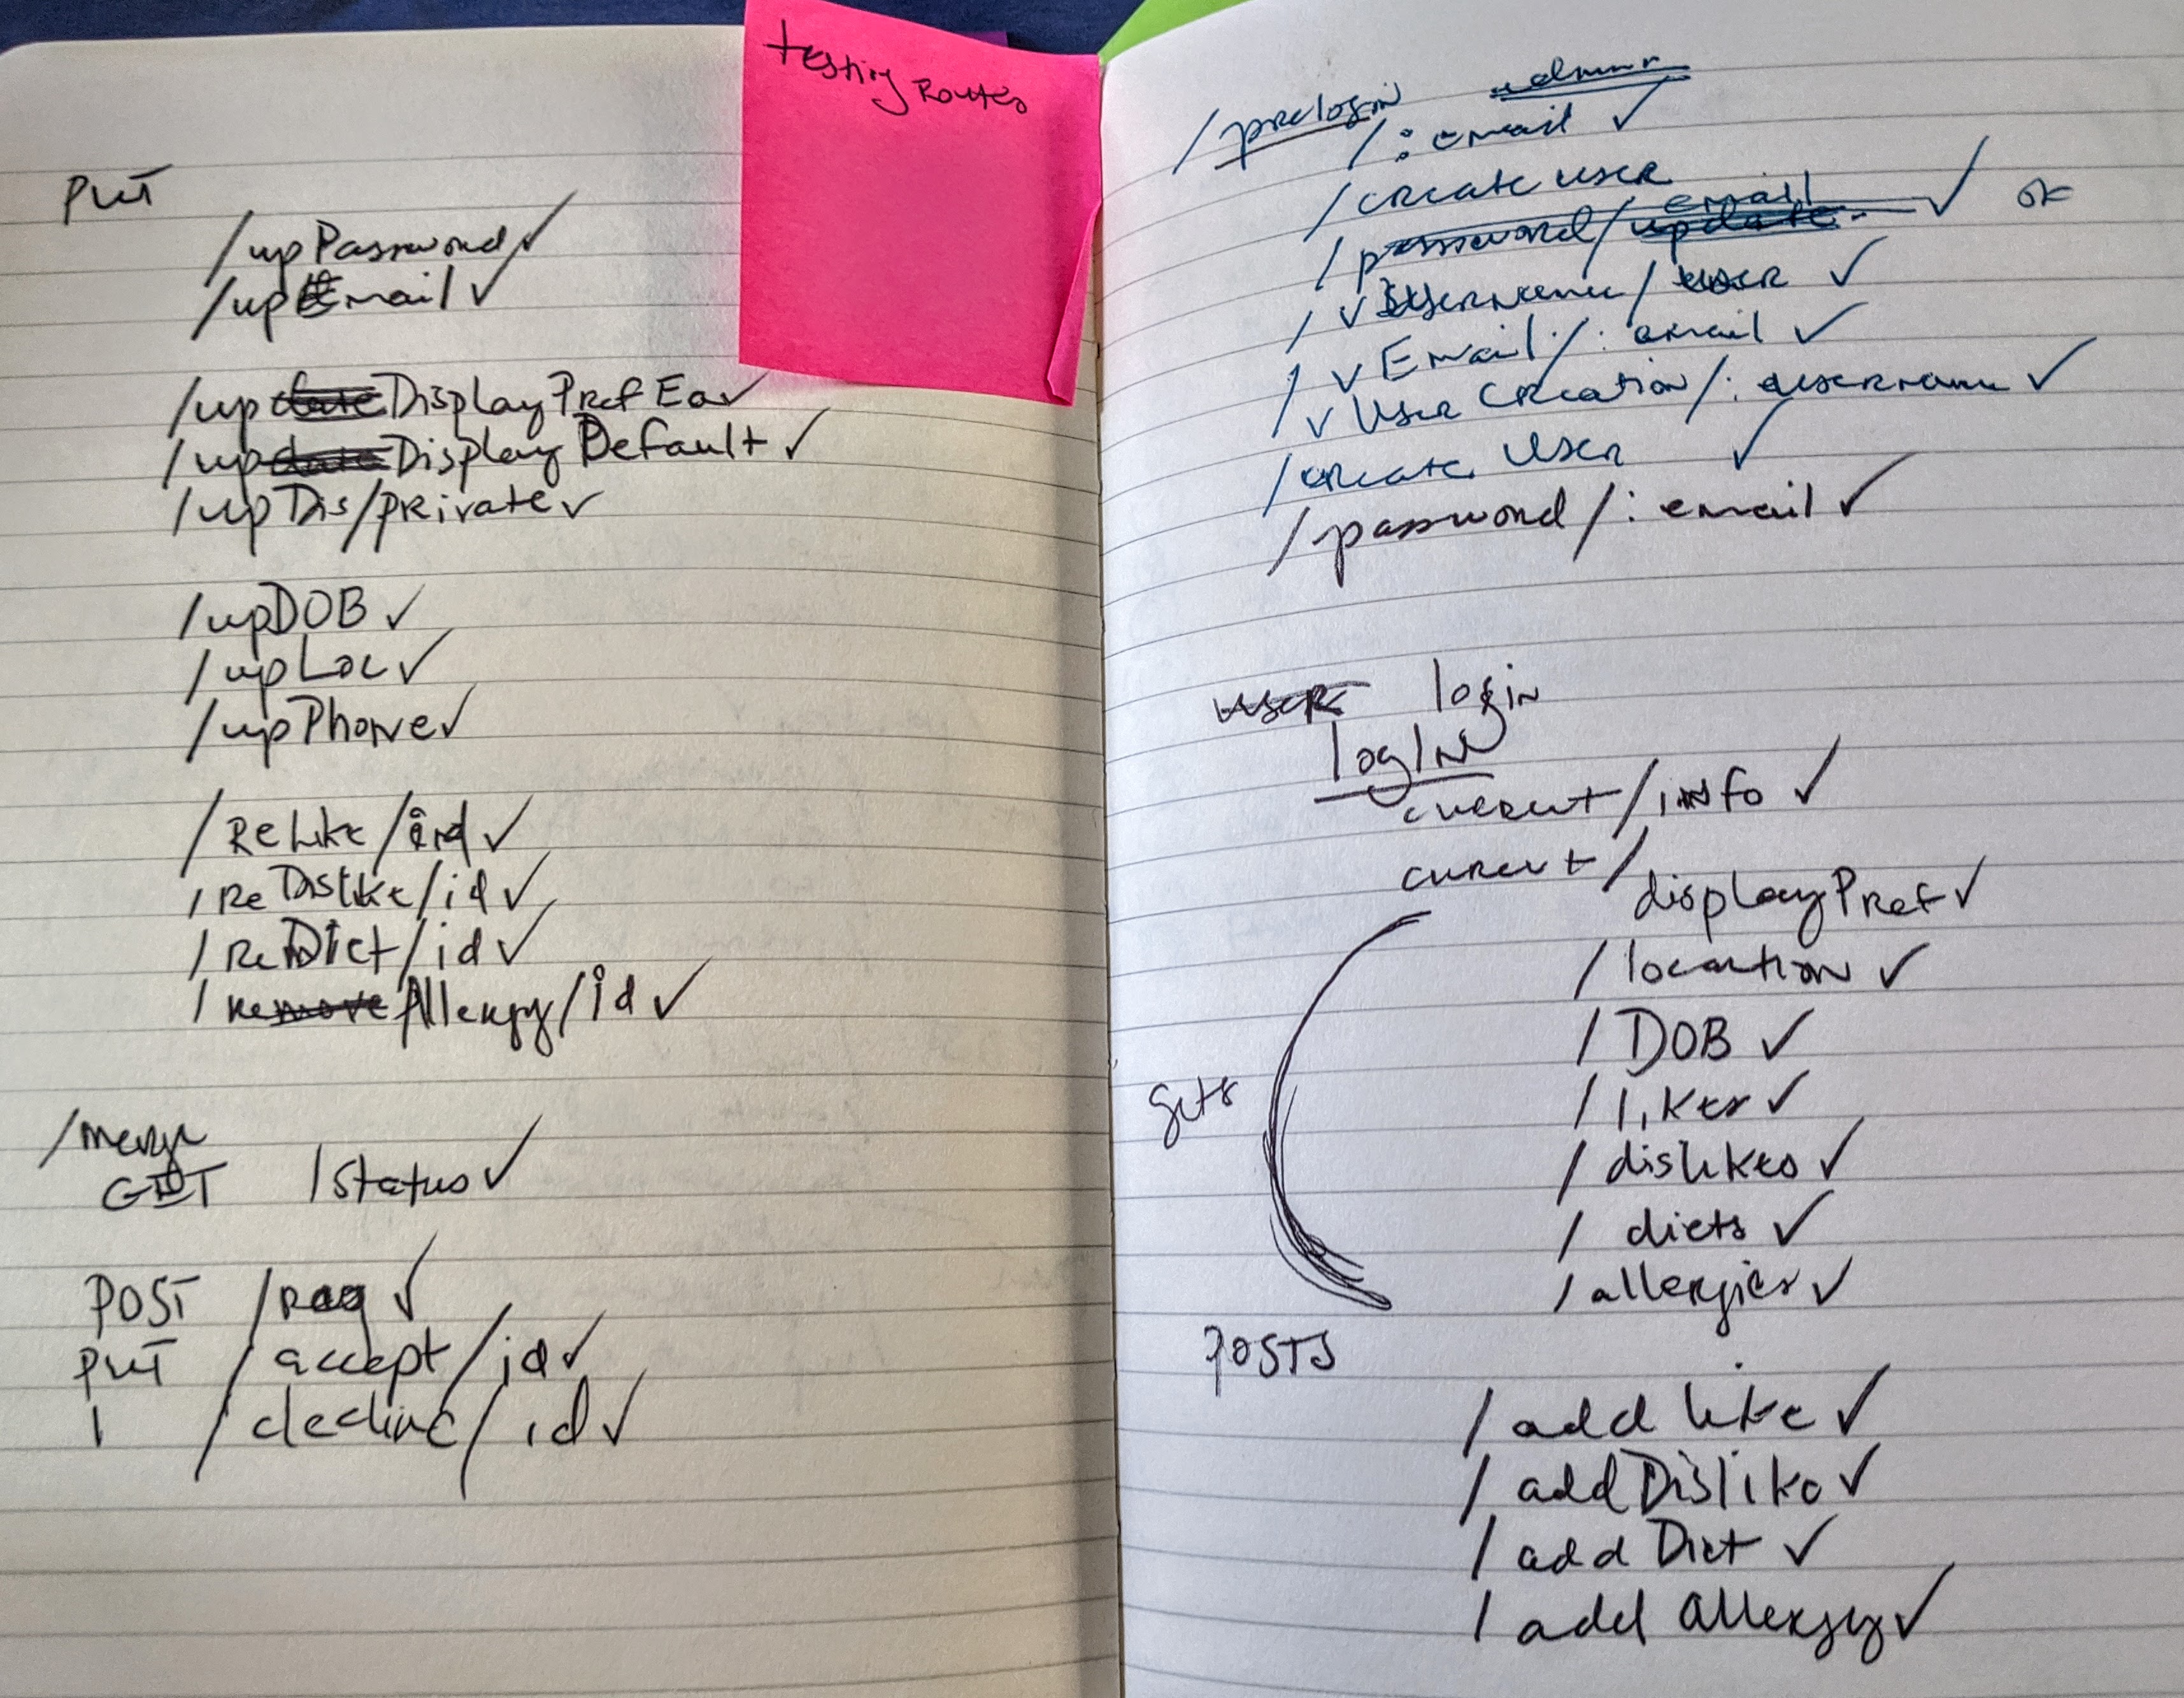 testing Routes
PUT
/upPassword ✓
/upEmail ✓
/upDisplayPrefEa ✓
/upDisplayDefault ✓
/upDis/private ✓
/upDOB ✓
/upLoc ✓
/upPhone ✓
/ReLike/id ✓
/ReDislike/id ✓
/ReDiet/id ✓
/ReAllergy/id ✓
/merge
GET /status ✓
POST /req ✓
PUT /accept/id ✓
| /decline/id ✓
/prelogin admin
/:email ✓
/create user
/password/email ✓ OK
/vUsername/user ✓
/vEmail/:email ✓
/vUserCreation/:username ✓
/create User ✓
/password/:email ✓
user login
logIN
current/info ✓
curent/
displayPref ✓
/location ✓
/DOB ✓
/likes ✓
gets
/dislikes ✓
/diets ✓
/allergies ✓
POSTS
/add like ✓
/addDislike ✓
/addDiet ✓
/add allergy ✓